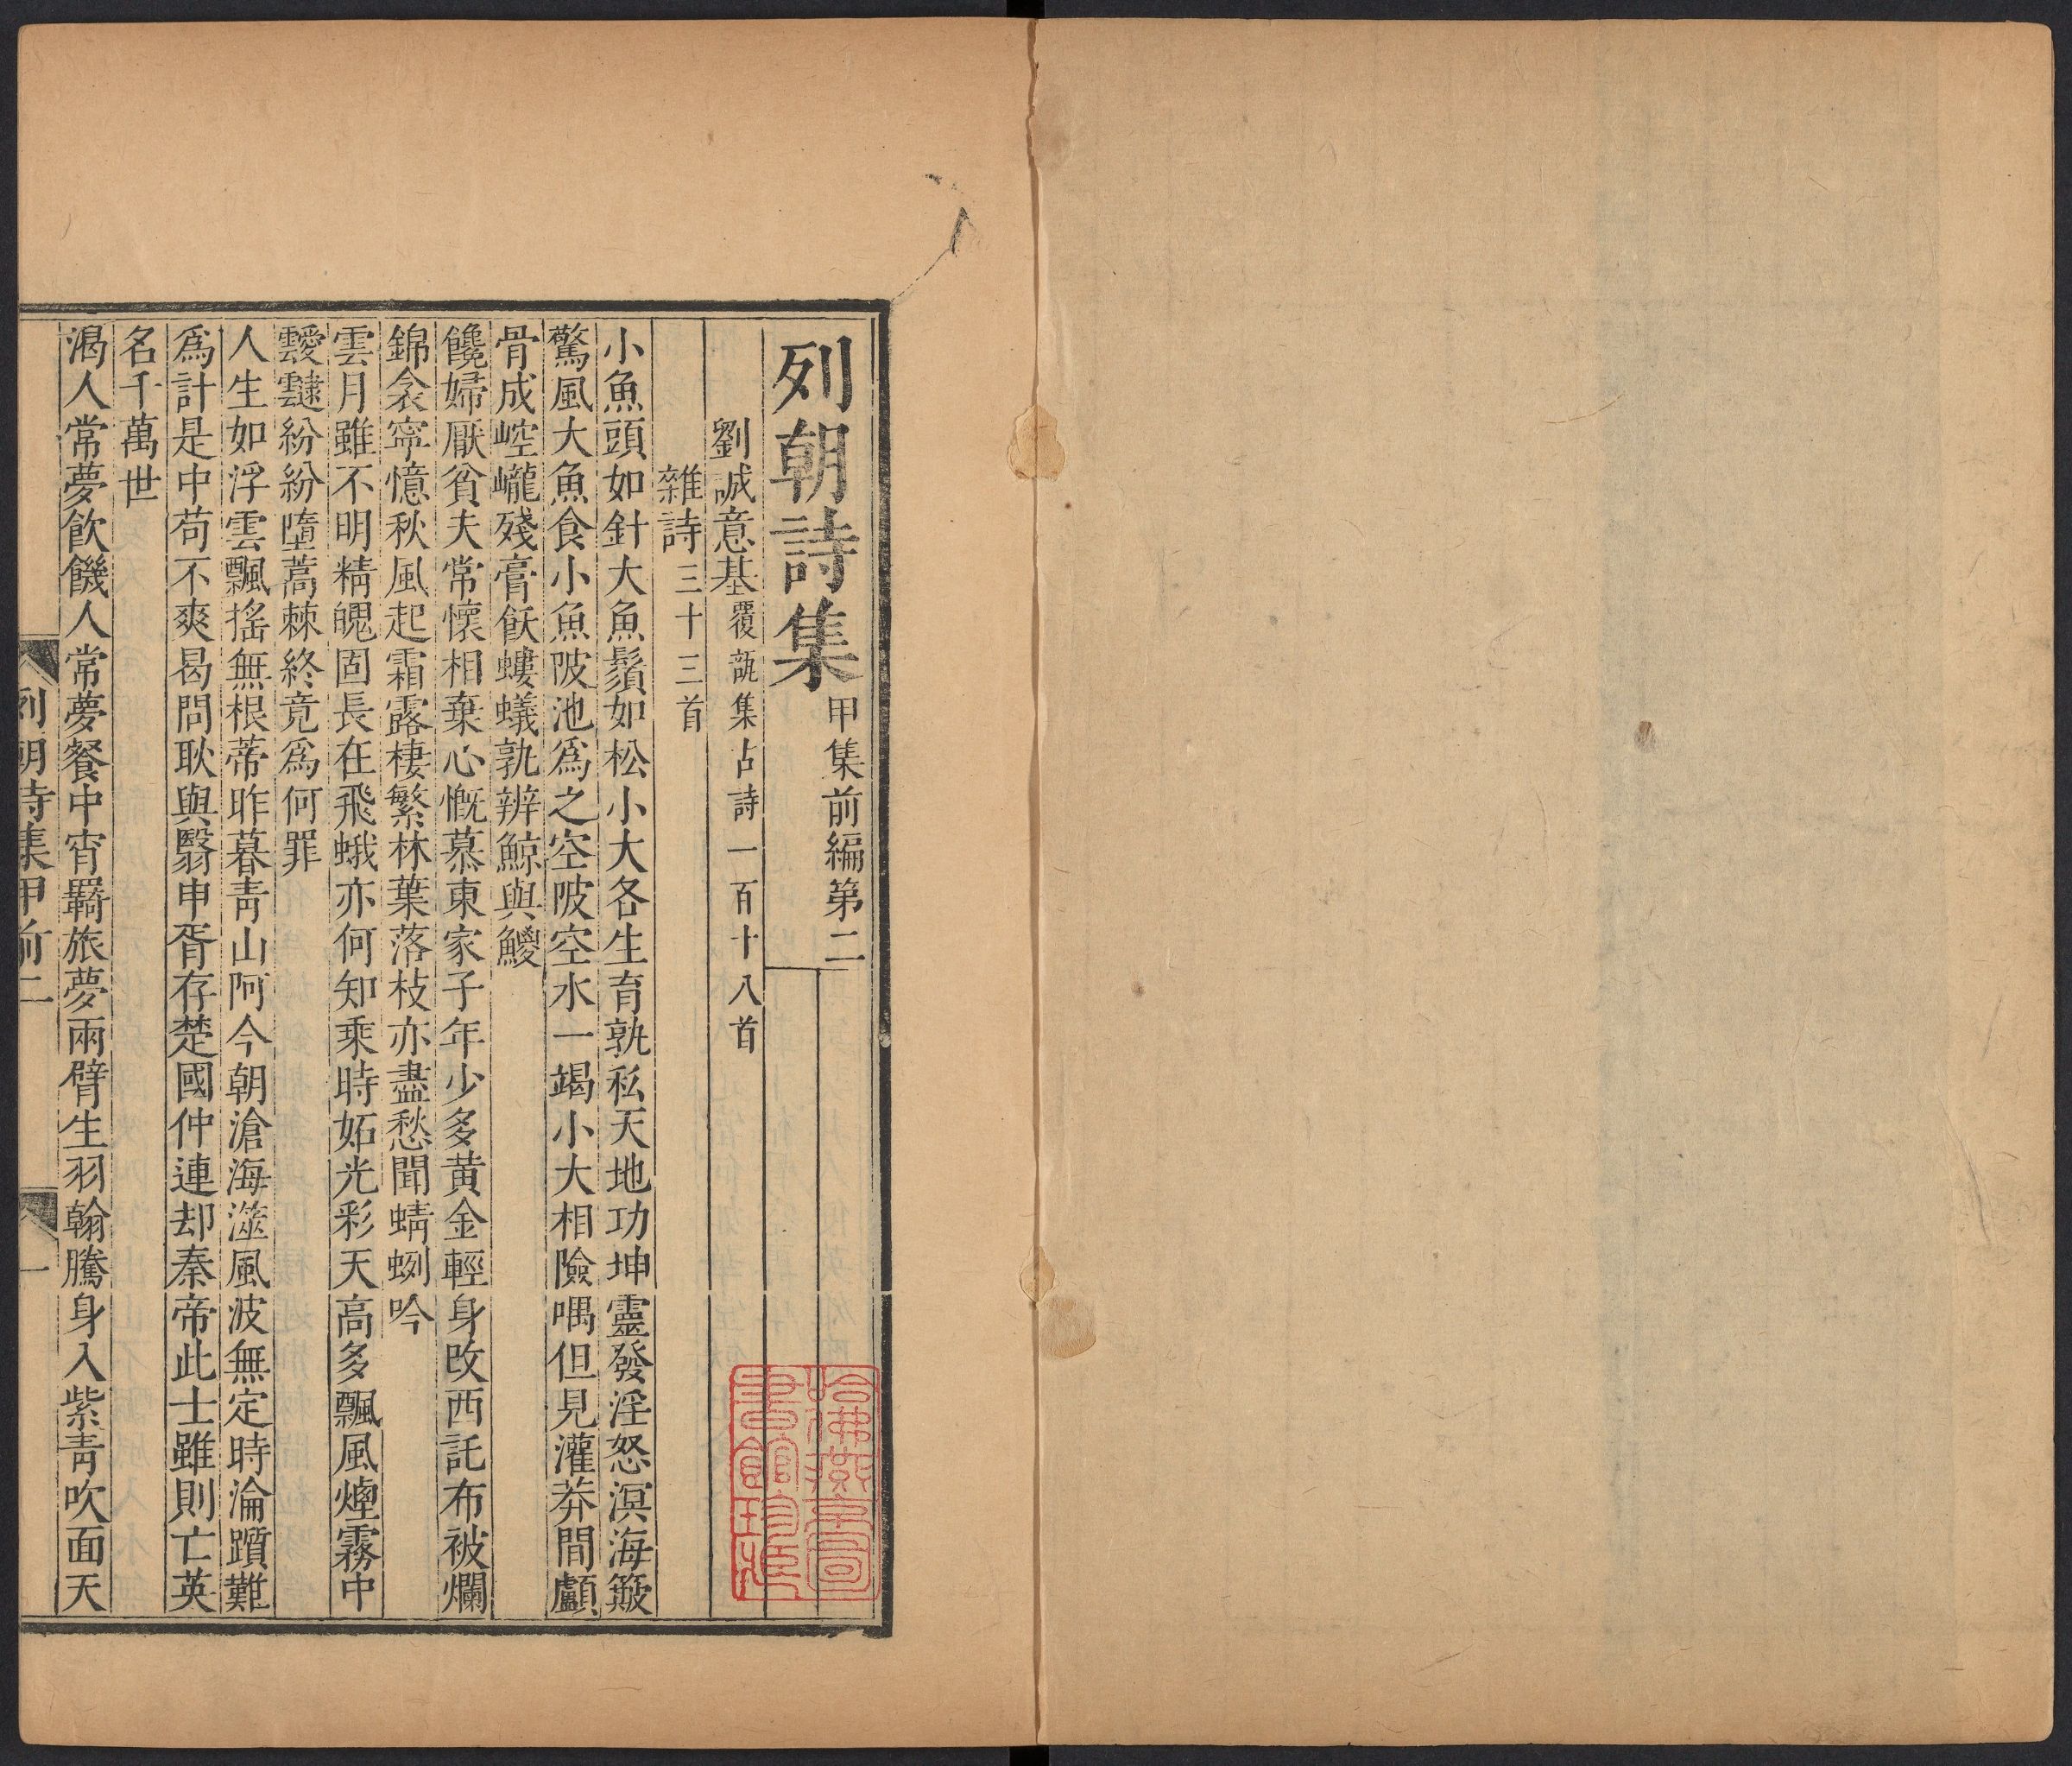 列朝詩集 甲集前編第二
劉誠意基 覆瓿集古詩一百十八首
雜詩三十三首
小魚頭如針大魚鬚如松小大各生育孰私天地功坤靈發淫怒溟海簸
驚風大魚食小魚陂池爲之空陂空水一竭小大相險喁但見灌莽間顱
骨成崆巄殘膏飫螻蟻孰辨鯨與鯼
饞婦厭貧夫常懷相棄心慨慕東家子年少多黄金輕身改西託布被爛
錦衾寧憶秋風起霜露棲繁林葉落枝亦盡愁聞蜻蛚吟
雲月雖不明精魄固長在飛蛾亦何知乘時妬光彩天高多飄風煙霧中
靉靆紛紛墮蒿棘終竟爲何罪
人生如浮雲飄搖無根蒂昨暮青山阿今朝滄海澨風波無定時淪躓難
爲計是中苟不爽曷問耿與翳申胥存楚國仲連却秦帝此士雖則亡英
名千萬世
渴人常夢飲饑人常夢餐中宵羈旅夢兩臂生羽翰騰身入紫青吹面天
列朝詩集甲前二
一
哈佛燕京圖書館珍藏